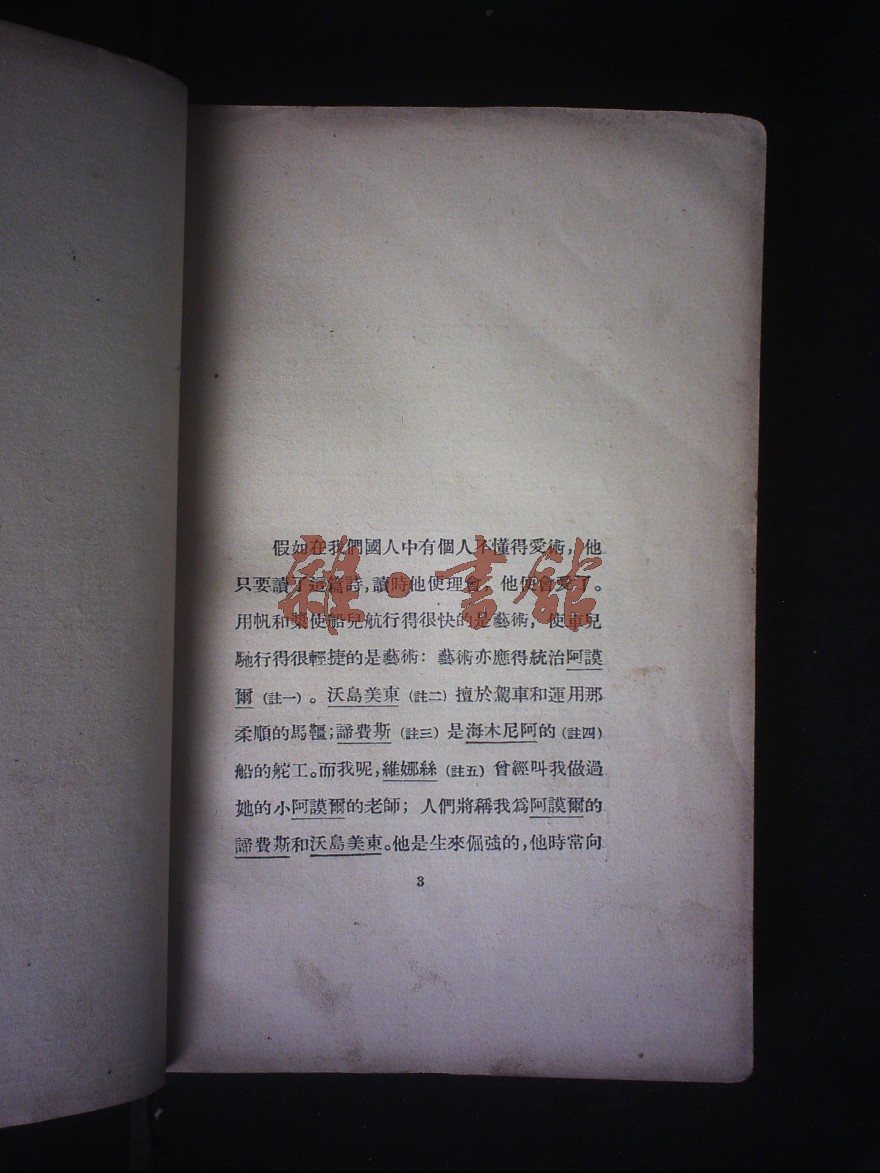 假如在我們國人中有個人不懂得愛術，他
只要讀了這篇詩，讀時他便理會，他便會愛了。
用帆和槳使船兒航行得很快的是藝術，使車兒
馳行得很輕捷的是藝術：藝術亦應得統治阿謨
爾（註一）。沃島美東（註二）擅於駕車和運用那
柔順的馬韁；諦費斯（註三）是海木尼阿的（註四）
船的舵工。而我呢，維娜絲（註五）曾經叫我做過
她的小阿謨爾的老師；人們將稱我爲阿謨爾的
諦費斯和沃島美東。他是生來倔強的，他時常向
3
雜·書館